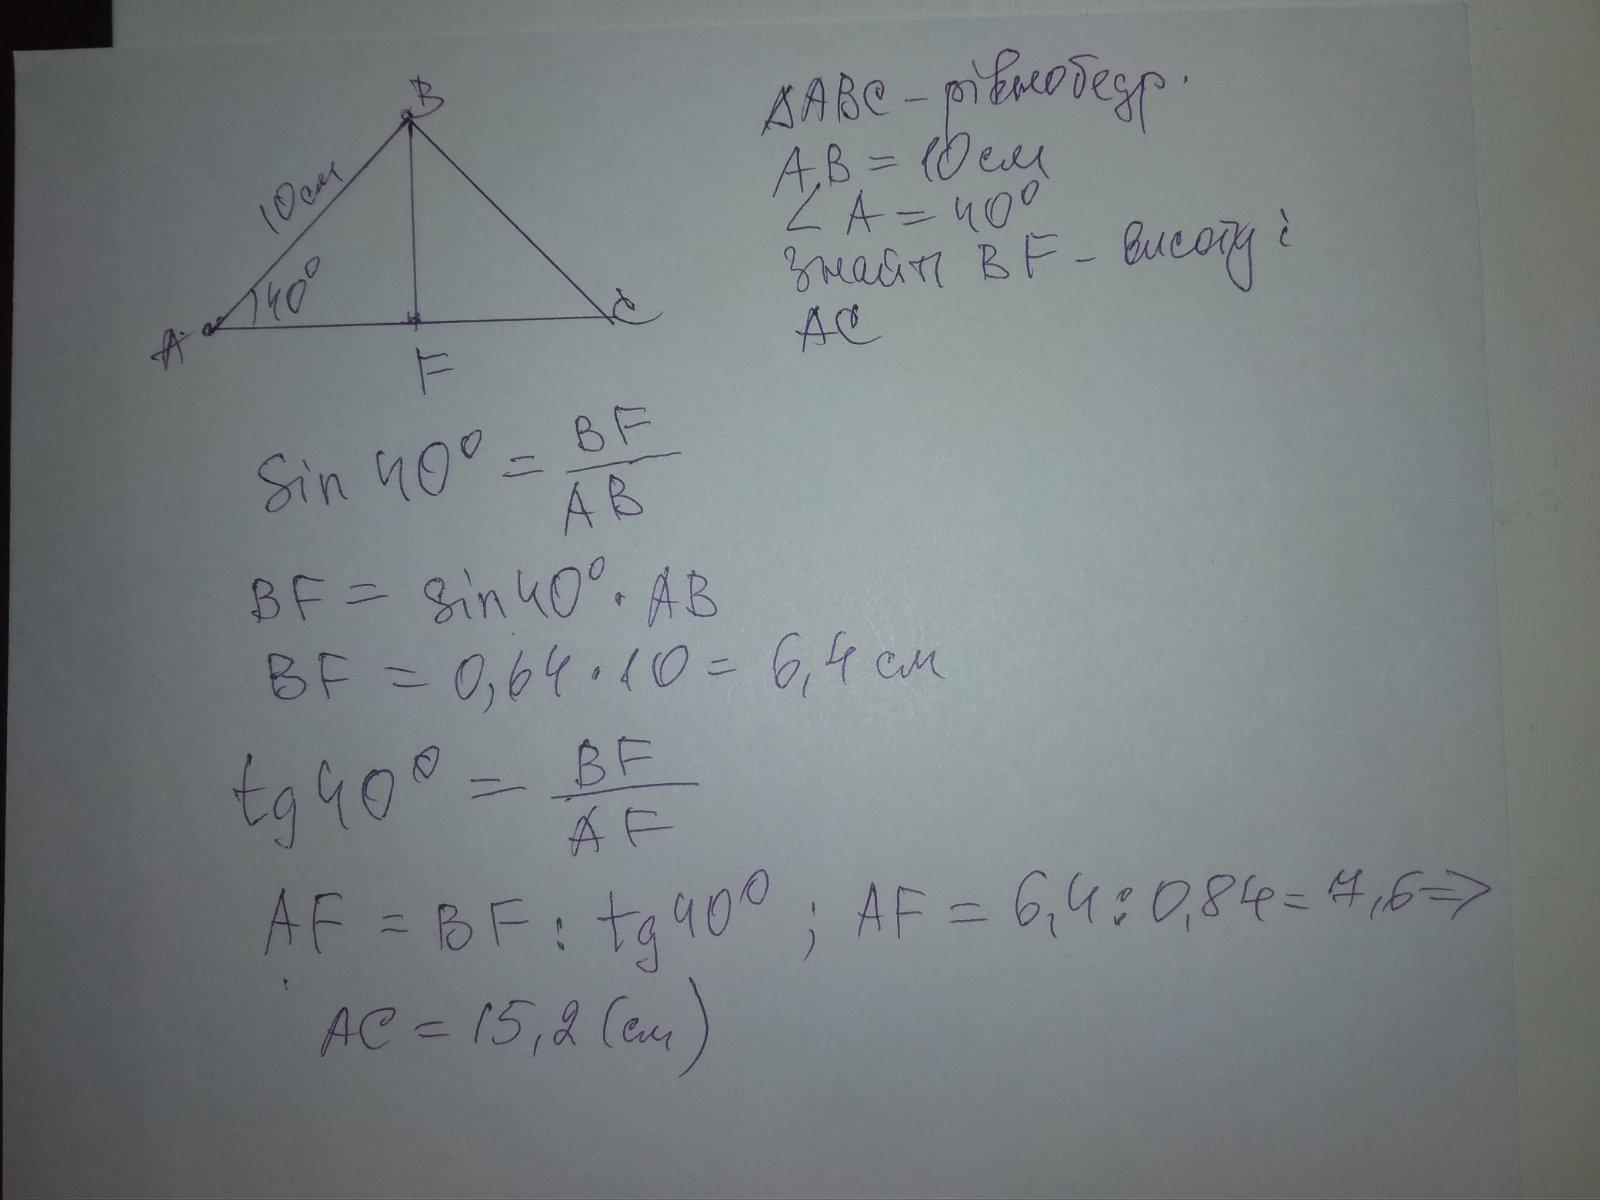 B
10 см
40°
A
C
F
ΔABC – рівнобедр.
AB = 10 см
∠ A = 40°
Знайти BF – висоту і
AC
Sin 40° = BF/AB
BF = sin 40° · AB
BF = 0,64 · 10 = 6,4 см
tg 40° = BF/AF
AF = BF : tg 40° ; AF = 6,4 : 0,84 = 7,6 =>
AC = 15,2 (см)